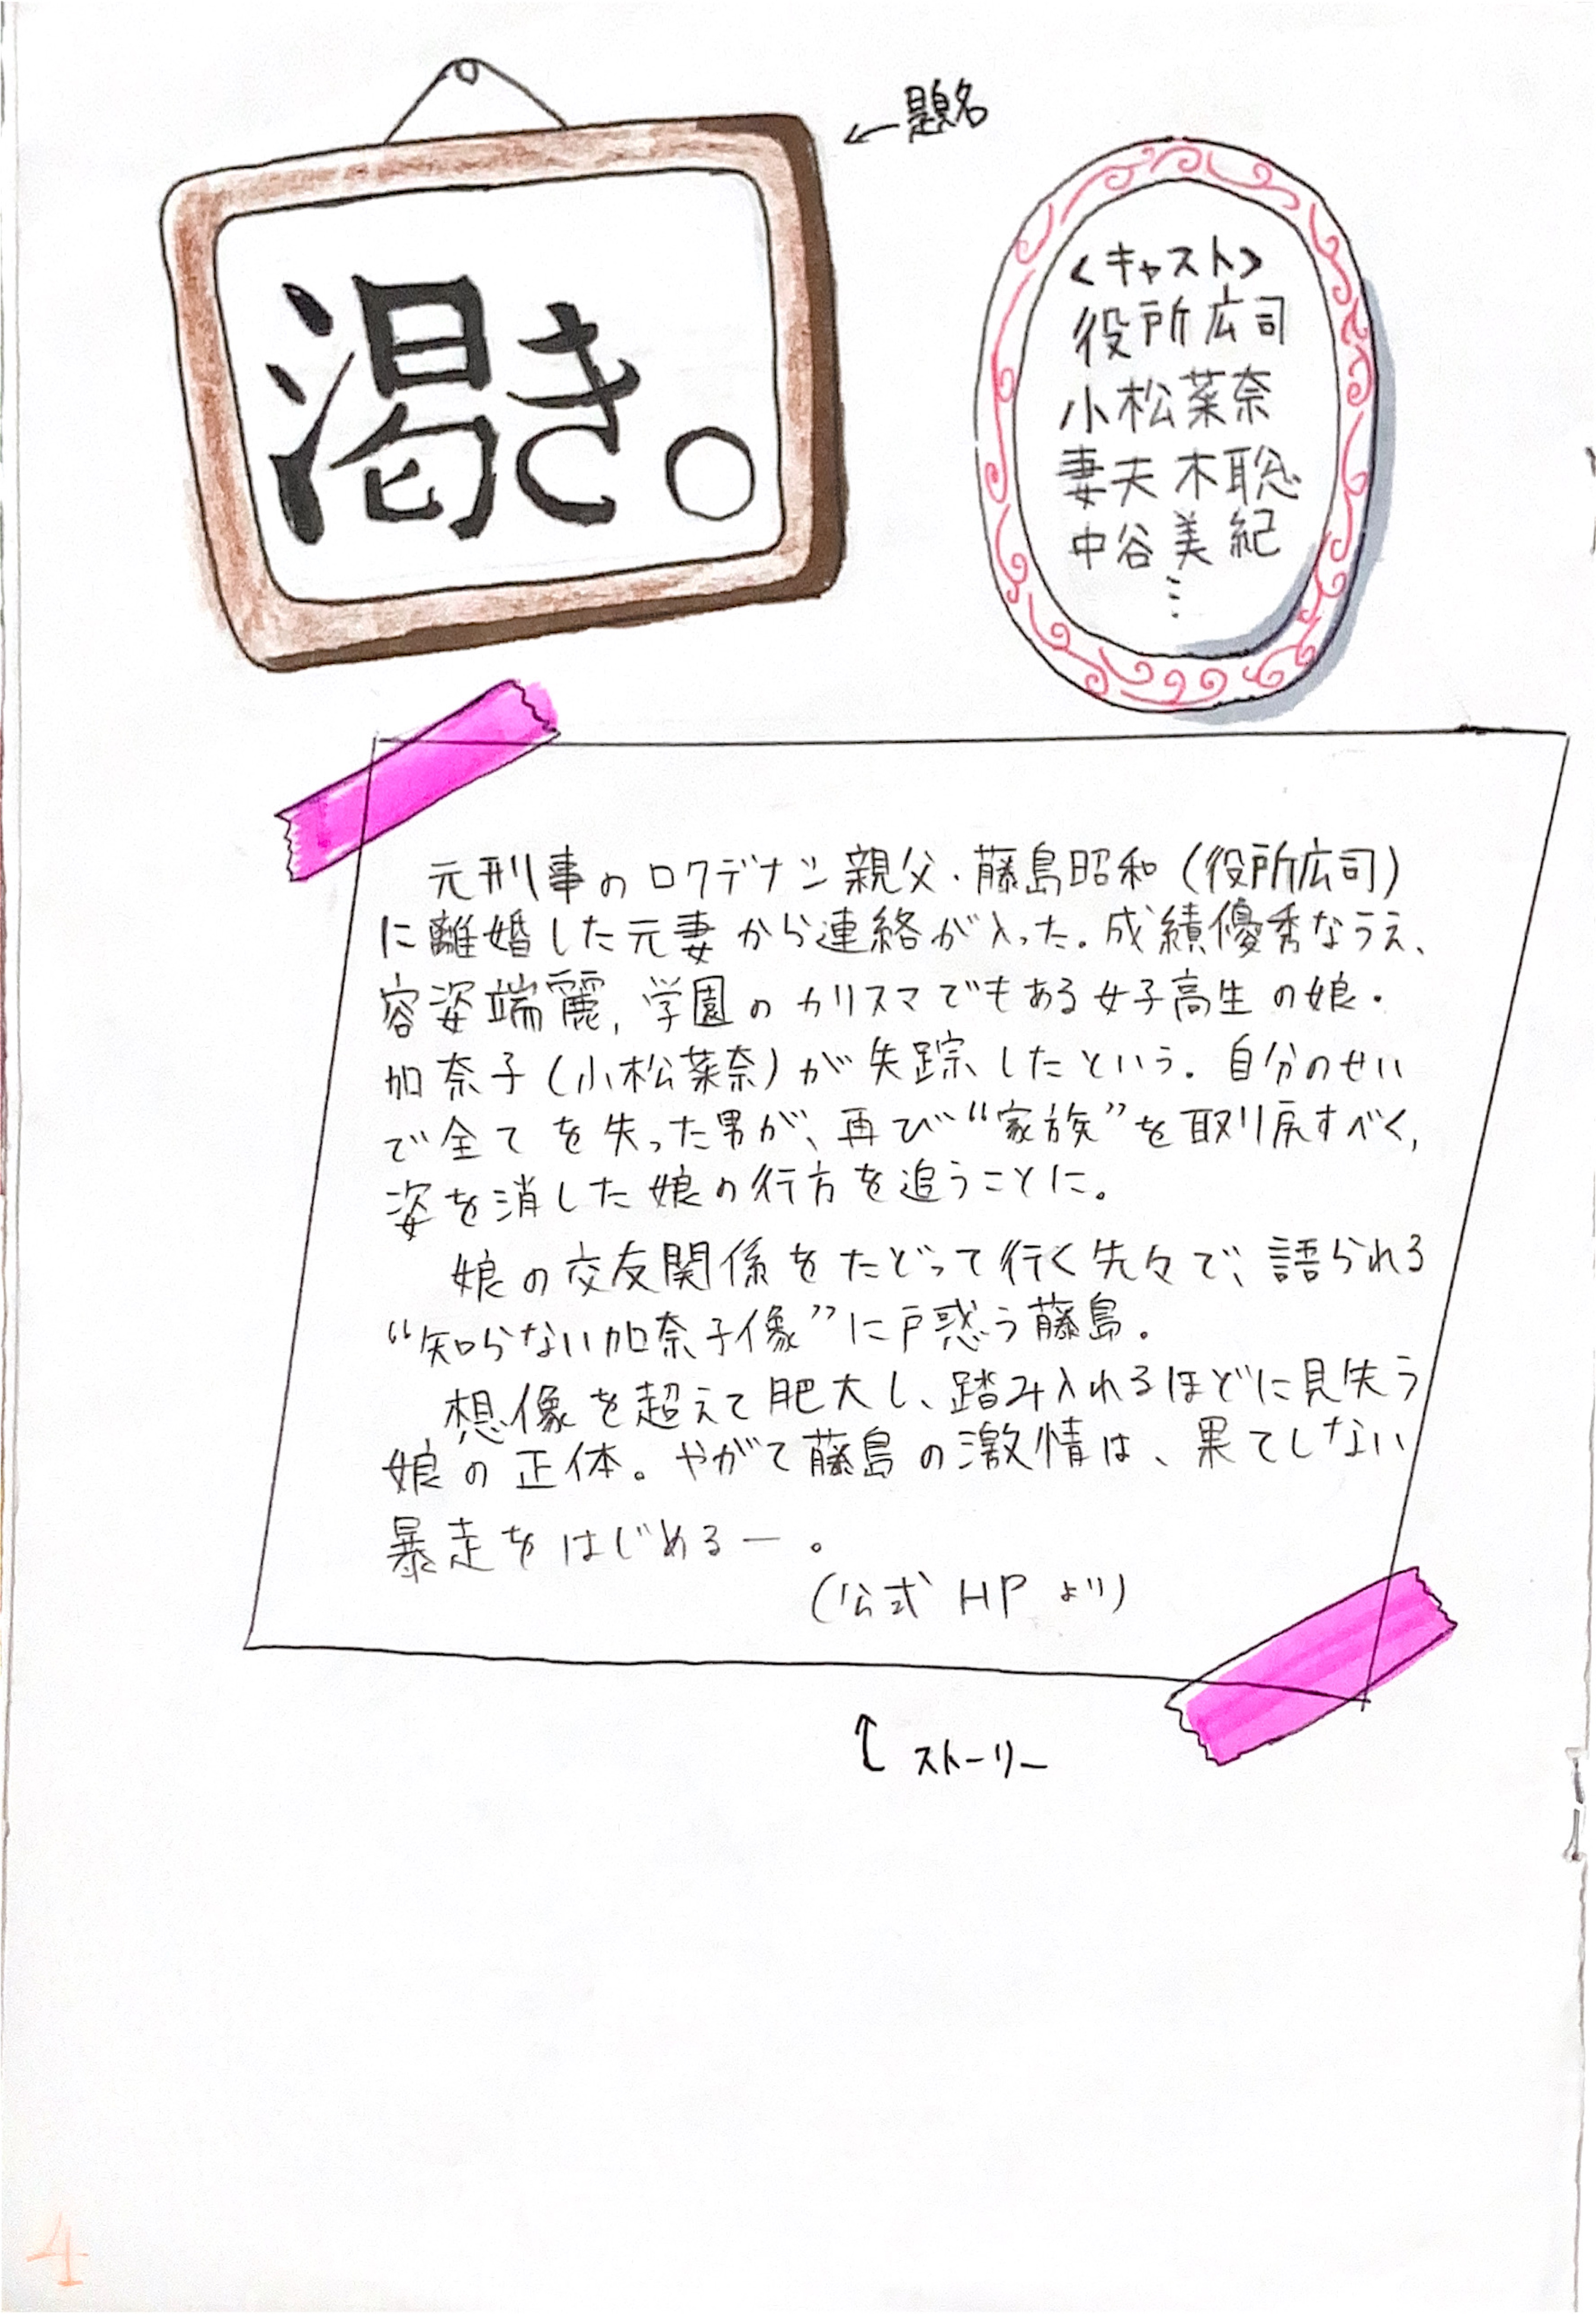 渇き。
←題名
<キャスト>
役所広司
小松菜奈
妻夫木聡
中谷美紀
⋮
元刑事のロクデナシ親父・藤島昭和(役所広司)
に離婚した元妻から連絡が入った。成績優秀なうえ、
容姿端麗,学園のカリスマでもある女子高生の娘・
加奈子(小松菜奈)が失踪したという。自分のせい
で全てを失った男が、再び“家族”を取り戻すべく,
姿を消した娘の行方を追うことに。
娘の交友関係をたどって行く先々で、語られる
“知らない加奈子像”に戸惑う藤島。
想像を超えて肥大し、踏み入れるほどに見失う
娘の正体。やがて藤島の激情は、果てしない
暴走をはじめるー。
(公式HPより)
↑ストーリー
4